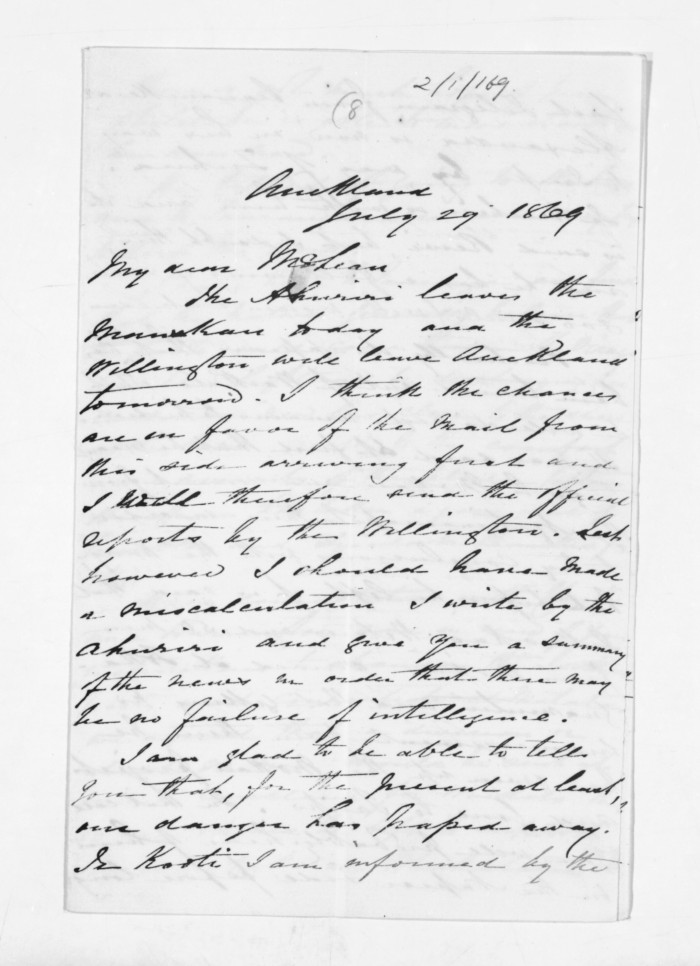 2/1/169.
(8
Auckland
July 29 1869
My dear McLean
The Ahuriri leaves the
Manukau today and the
Wellington will leave Auckland
tomorrow. I think the chances
are in favor of the mail from
this side arriving first and
I will therefore send the official
reports by the Wellington. Lest
however I should have made
a miscalculation I write by the
Ahuriri and give you a summary
of the news in order that there may
be no failure of intelligence.
I am glad to be able to tell
you that, for the present at least,
our danger has passed away.
Te Kooti I am informed by the